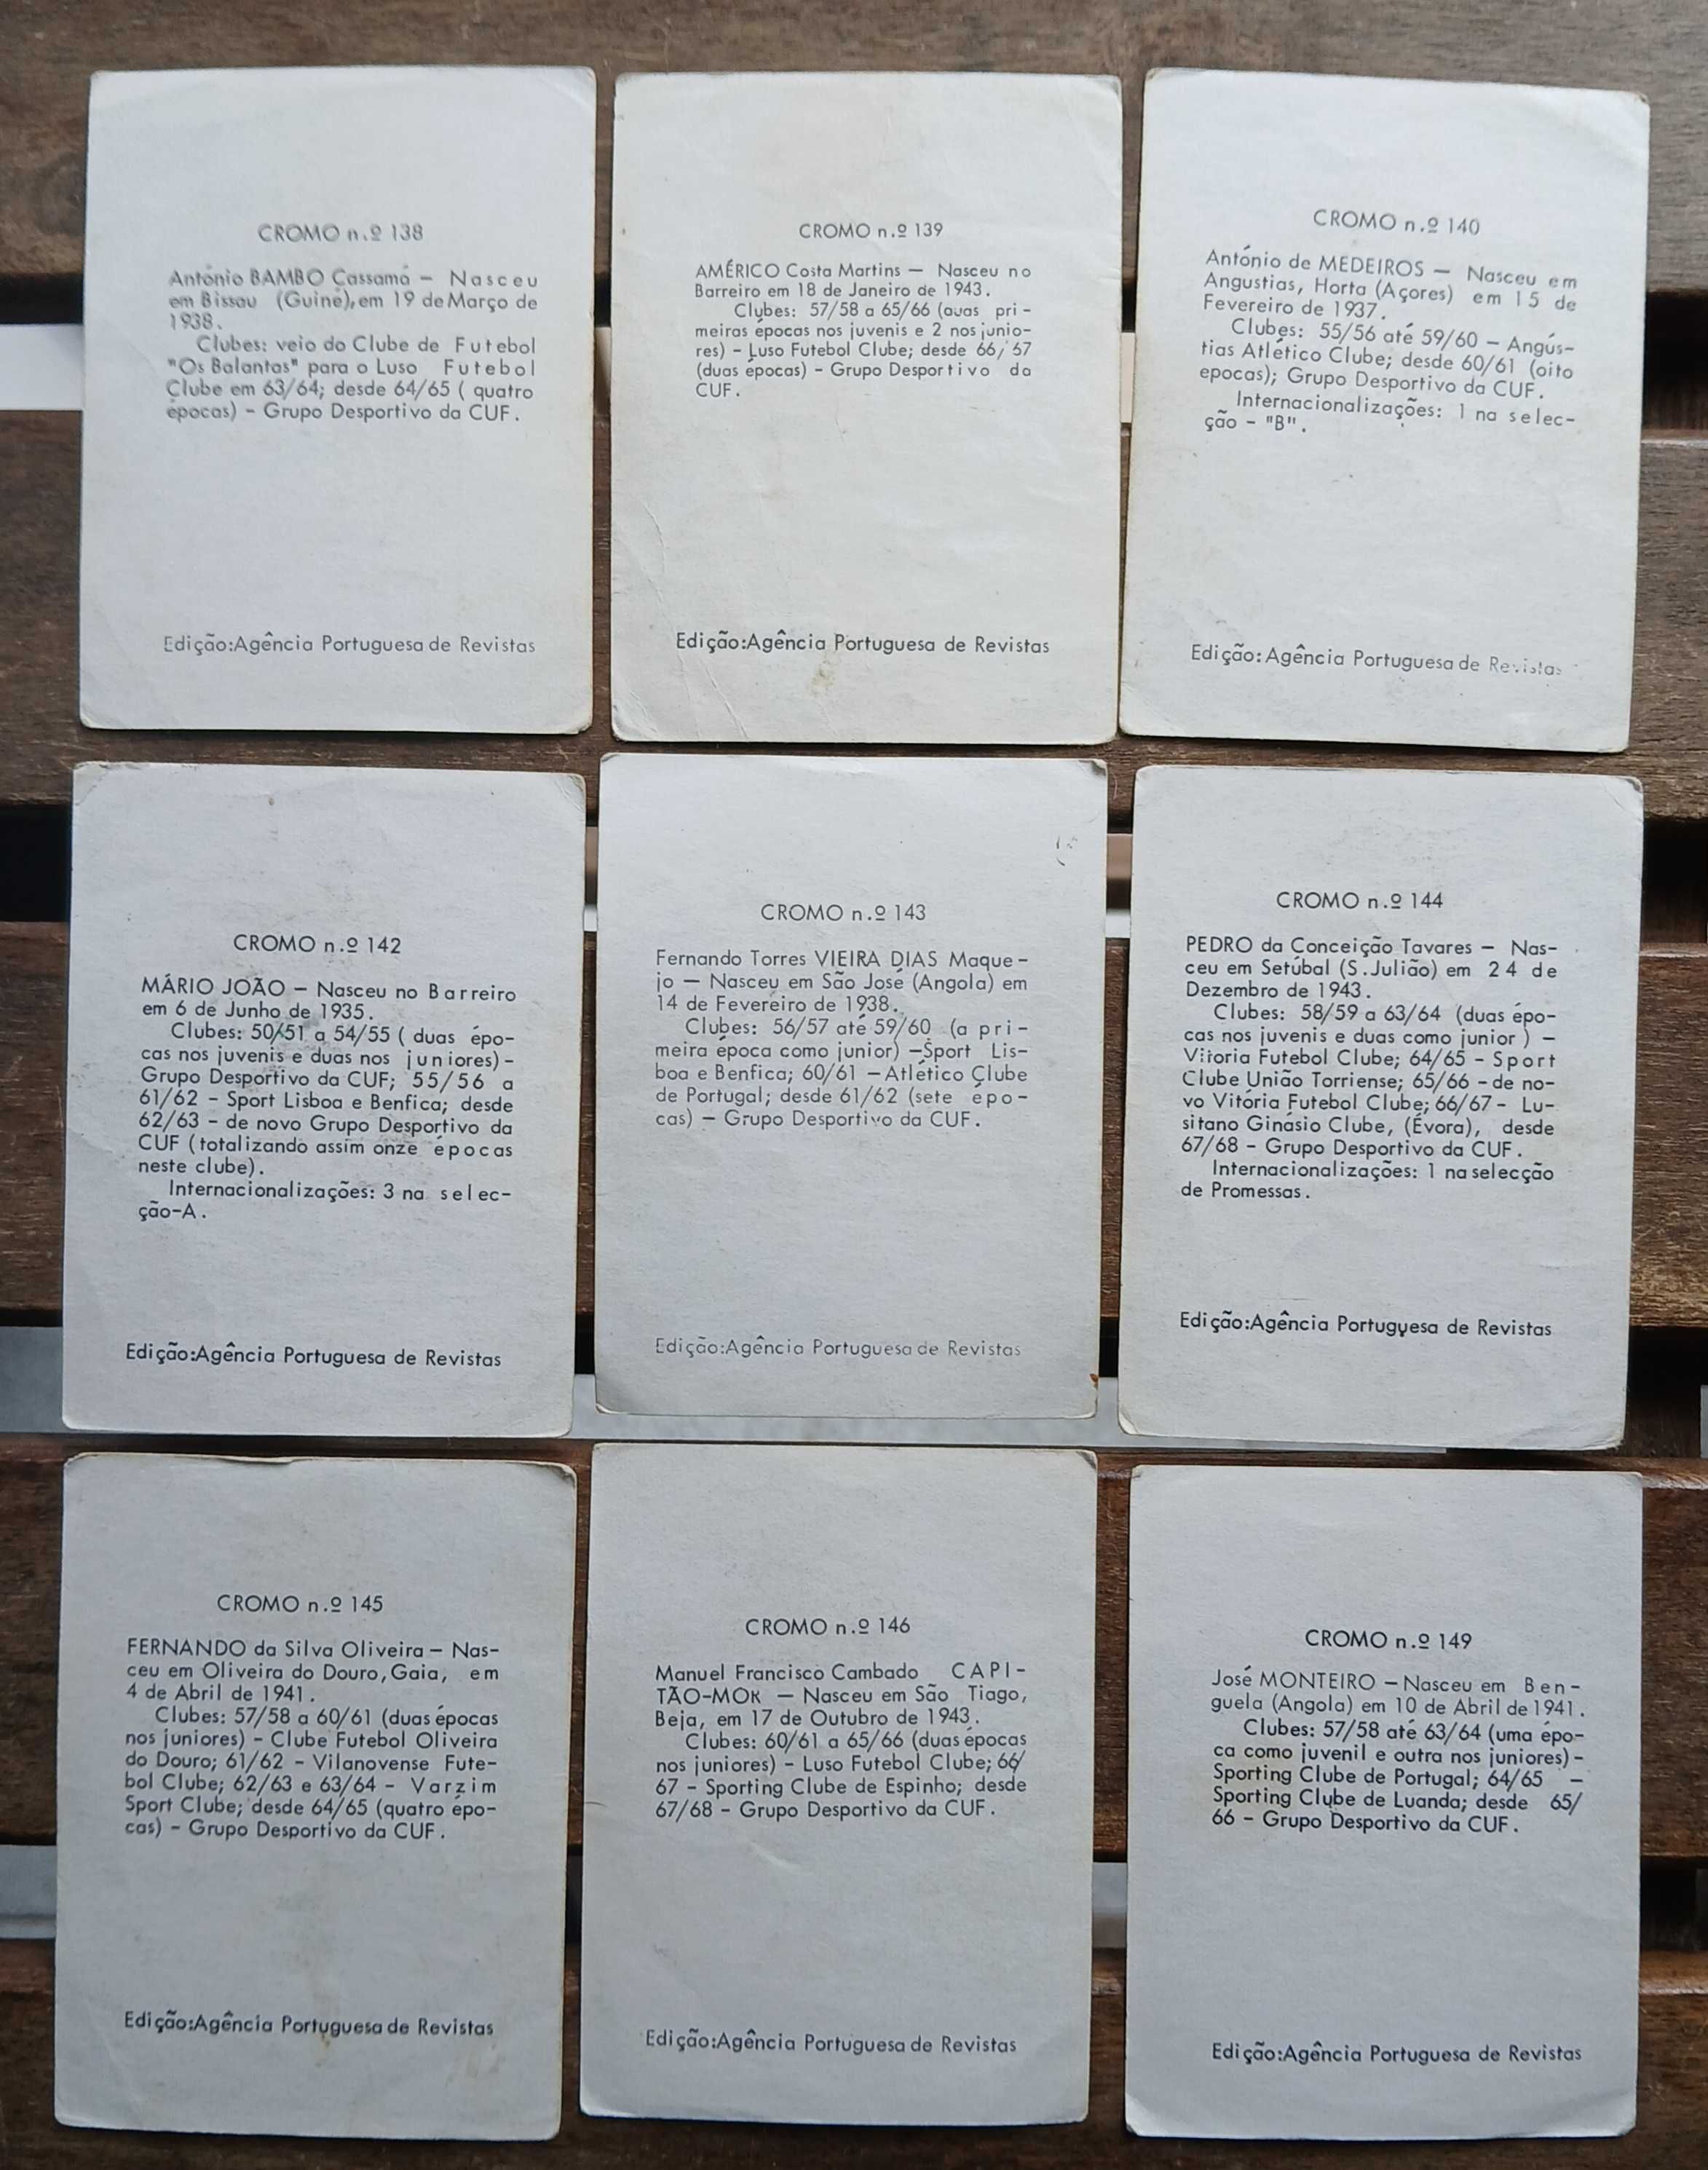 CROMO n.º 138
António BAMBO Cassamá — Nasceu
em Bissau (Guiné), em 19 de Março de
1938.
Clubes: veio do Clube de Futebol
"Os Balantas" para o Luso Futebol
Clube em 63/64; desde 64/65 ( quatro
épocas) - Grupo Desportivo da CUF.
Edição:Agência Portuguesa de Revistas
CROMO n.º 139
AMÉRICO Costa Martins — Nasceu no
Barreiro em 18 de Janeiro de 1943.
Clubes: 57/58 a 65/66 (duas pri-
meiras épocas nos juvenis e 2 nos junio-
res) - Luso Futebol Clube; desde 66/67
(duas épocas) - Grupo Desportivo da
CUF.
Edição:Agência Portuguesa de Revistas
CROMO n.º 140
António de MEDEIROS — Nasceu em
Angustias, Horta (Açores) em 15 de
Fevereiro de 1937.
Clubes: 55/56 até 59/60 - Angús-
tias Atlético Clube; desde 60/61 (oito
epocas); Grupo Desportivo da CUF.
Internacionalizações: 1 na selec-
ção - "B".
Edição:Agência Portuguesa de Revistas
CROMO n.º 142
MÁRIO JOÃO — Nasceu no Barreiro
em 6 de Junho de 1935.
Clubes: 50/51 a 54/55 ( duas épo-
cas nos juvenis e duas nos juniores) -
Grupo Desportivo da CUF; 55/56 a
61/62 - Sport Lisboa e Benfica; desde
62/63 - de novo Grupo Desportivo da
CUF (totalizando assim onze épocas
neste clube).
Internacionalizações: 3 na selec-
ção-A.
Edição:Agência Portuguesa de Revistas
CROMO n.º 143
Fernando Torres VIEIRA DIAS Maque-
jo — Nasceu em São José (Angola) em
14 de Fevereiro de 1938.
Clubes: 56/57 até 59/60 (a pri-
meira época como junior) —Sport Lis-
boa e Benfica; 60/61 —Atlético Clube
de Portugal; desde 61/62 (sete épo-
cas) — Grupo Desportivo da CUF.
Edição:Agência Portuguesa de Revistas
CROMO n.º 144
PEDRO da Conceição Tavares — Nas-
ceu em Setúbal (S.Julião) em 24 de
Dezembro de 1943.
Clubes: 58/59 a 63/64 (duas épo-
cas nos juvenis e duas como junior ) —
Vitoria Futebol Clube; 64/65 - Sport
Clube União Torriense; 65/66 -de no-
vo Vitória Futebol Clube; 66/67- Lu-
sitano Ginásio Clube, (Évora), desde
67/68 - Grupo Desportivo da CUF.
Internacionalizações: 1 na selecção
de Promessas.
Edição:Agência Portuguesa de Revistas
CROMO n.º 145
FERNANDO da Silva Oliveira — Nas-
ceu em Oliveira do Douro,Gaia, em
4 de Abril de 1941.
Clubes: 57/58 a 60/61 (duas épocas
nos juniores) - Clube Futebol Oliveira
do Douro; 61/62 - Vilanovense Fute-
bol Clube; 62/63 e 63/64 - Varzim
Sport Clube; desde 64/65 (quatro épo-
cas) - Grupo Desportivo da CUF.
Edição:Agência Portuguesa de Revistas
CROMO n.º 146
Manuel Francisco Cambado CAPI-
TÃO-MOR — Nasceu em São Tiago,
Beja, em 17 de Outubro de 1943.
Clubes: 60/61 a 65/66 (duas épocas
nos juniores) - Luso Futebol Clube; 66/
67 - Sporting Clube de Espinho; desde
67/68 - Grupo Desportivo da CUF.
Edição:Agência Portuguesa de Revistas
CROMO n.º 149
José MONTEIRO —Nasceu em Ben-
guela (Angola) em 10 de Abril de 1941.
Clubes: 57/58 até 63/64 (uma épo-
ca como juvenil e outra nos juniores)-
Sporting Clube de Portugal; 64/65 —
Sporting Clube de Luanda; desde 65/
66 - Grupo Desportivo da CUF.
Edição:Agência Portuguesa de Revistas